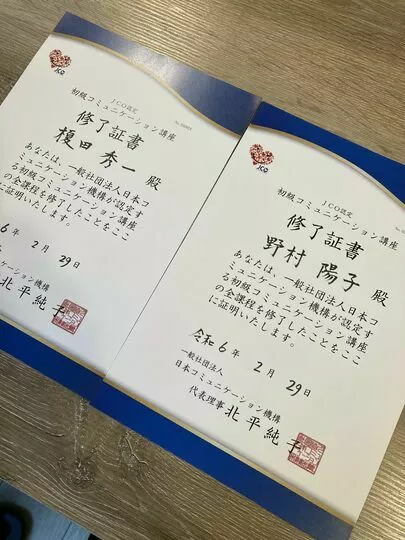 JCO
JCO認定
初級コミュニケーション講座
修了証書
榎田 秀一 殿
あなたは、一般社団法人日本コ
ミュニケーション機構が認定す
る初級コミュニケーション講座
の全課程を修了したことをここ
に証明いたします。
6年 2月 29日
ケーション機構
北平純子
JCO
JCO認定
初級コミュニケーション講座
修了証書
野村 陽子 殿
あなたは、一般社団法人日本コ
ミュニケーション機構が認定す
る初級コミュニケーション講座
の全課程を修了したことをここ
に証明いたします。
令和6年 2月 29日
一般社団法人
日本コミュニケーション機構
代表理事 北平純子